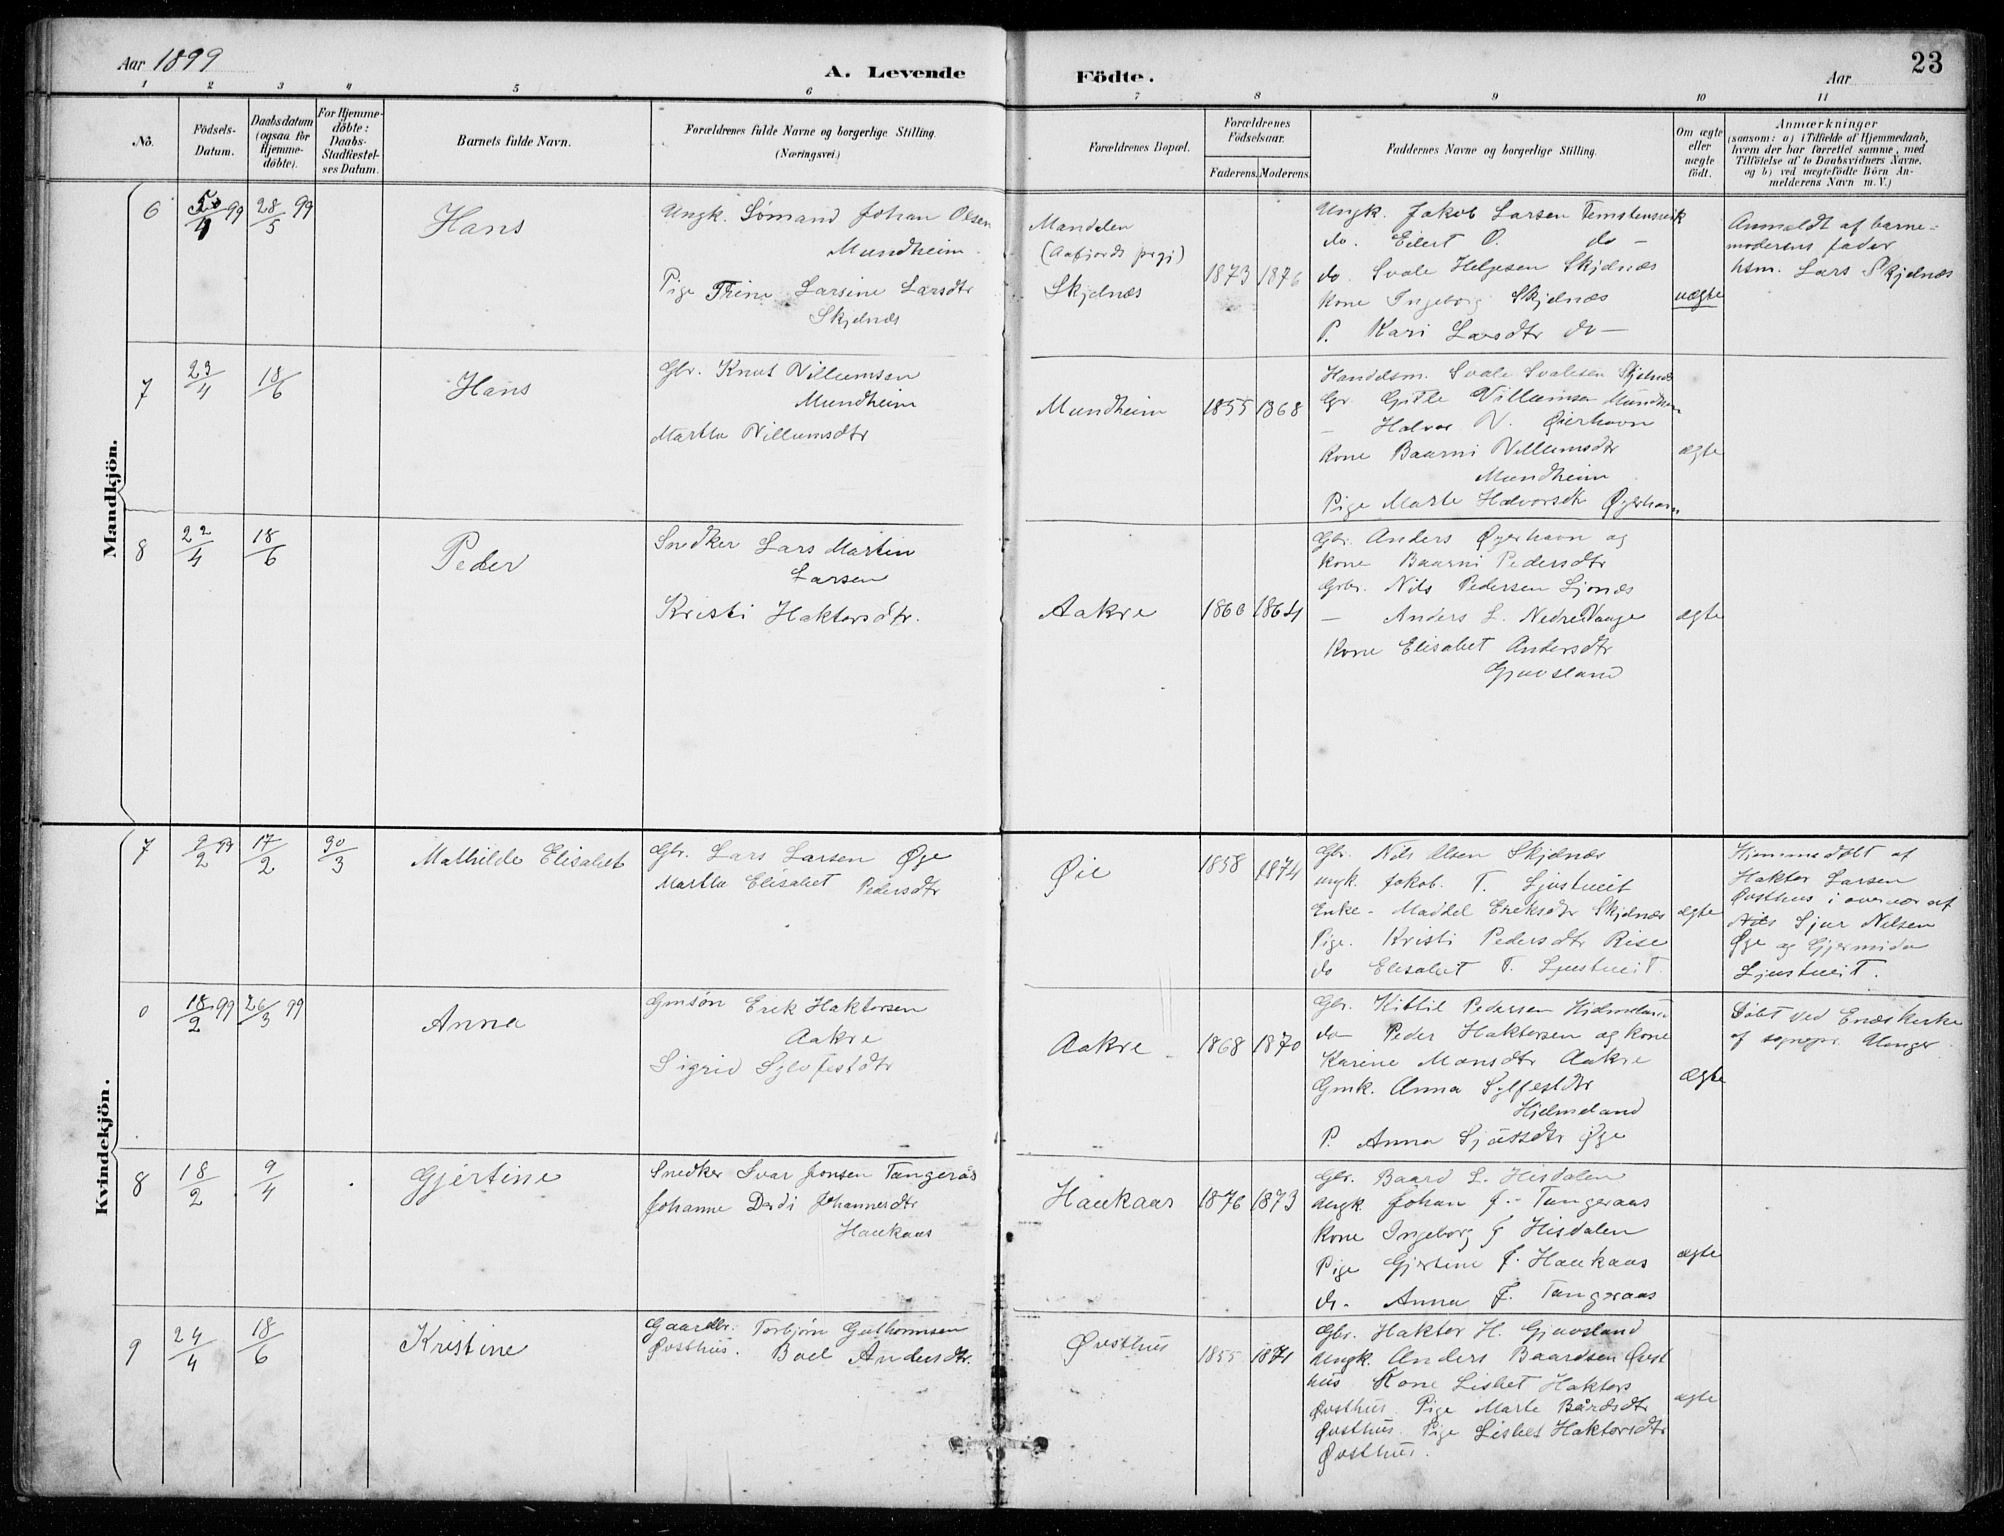 Aar 1899
A. Levende
Födte.
Aar
23
1 2 3 4 5 6 7 8 9 10 11
No.
Födsels-
Datum.
Daabsdatum
(ogsaa for
Hjemme-
döbte).
For Hjemme-
döbte:
Daabs-
Stadfæstel-
ses Datum.
Barnets fulde Navn.
Forældrenes fulde Navne og borgerlige Stilling.
(Næringsvei.)
Forældrenes Bopæl.
Forældrenes
Födselsaar.
Faderens. Moderens.
Faddernes Navne og borgerlige Stilling.
Om ægte
eller
uægte
födt.
Anmærkninger
(saasom: a) i Tilfælde af Hjemmedaab,
hvem der har forrettet samme, med
Tilföielse af to Daabsvidners Navne.
og b) ved uægtefödte Börn An-
melderens Navn m. V.)
Mandkjön.
6
99 28/5 99
Hans
Ungk. Sømand Johan Olsen
Mundheim
Pige Trine Larsine Larsdtr
Skjelnæs
Mandalen
(Aafjords prgj)
Skjelnæs
1873 1876
Ungk. Jakob Larsen
do. Eilert O. do -
do. Svale Helgesen Skjelnæs
Kone Ingeborg Skjelnæs
P. Kari Larsdtr do -
uægte
Anmeldt af barne-
moderens fader
hsm. Lars Skjelnæs
7
23/4 18/6
Hans
Gbr. Knut Villumsen
Mundheim
Martha Villumsdtr
Mundheim
1855 1868
Handelsm. Svale Svalesen Skjelnæs
Gbr. Gitle Villumsen Mundheim
- Halvor V. Øierhavn
Kone Baarni Villumsdtr
Mundheim
Pige Marte Halvorsdtr Øyerhavn
ægte
8
22/4 18/6
Peder
Snedker Lars Martin
Larsen
Kristi Haktorsdtr.
Aakre
1860 1864
Gbr. Anders Øyerhavn og
Kone Baarni Pedersdtr
Grbr. Nils Pedersen Ljonæs
- Anders L. Nedre Vange
Kone Elisabet Andersdtr
Gjuvsland
ægte
Kvindekjön.
7
9/2 99 17/2 30/3
Mathilde Elisabet
Gbr. Lars Larsen Øye
Martha Elisabet Pedersdtr
Øie
1858 1874
Gbr. Nils Olsen Skjelnæs
Ungk. Jakob. T. Ljustveit
Enke - Maddel Eriksdtr Skjelnæs
Pige. Kristi Pedersdtr Rise
do Elisabet T. Ljustveit.
ægte
Hjemmedøbt af
Haktor Larsen
Øvsthus i overvær af
Nils Sjur Nelsen
Øye og Gjermida
Ljustveit.
0
18/2 99 26/3 99
Anna
Gmsøn Erik Haktorsen
Aakre
Sigrid Sylvfestdtr
Aakre
1868 1870
Gbr. Kittil Pedersen Hjelmeland
do Peder Haktorsen og kone
Karine Monsdtr Aakre
Gmk. Anna Sylfestdtr
Hjelmeland
P. Anna Sjursdtr Øye
ægte
Døbt ved Enæs kirke
af sognepr. Unger
8
18/2 9/4
Gjertine
Snedker Ivar Jonsen Tangerås
Johanne Dordi Johannesdtr
Haukaas
Haukaas
1876 1873
Gbr. Baard L. Hisdalen
Ungk. Johan J. - Tangeraas
Kone Ingeborg J Hisdalen
Pige Gjertine J. Haukaas
do. Anna J. Tangeraas
ægte
9
24/4 18/6
Kristine
Gaardbr. Torbjørn Guthormsen
Øvsthus. Boel Andersdtr.
Øvsthus
1855 1871
Gbr. Haktor H. Gjuvsland
Ungk. Anders Baardsen Øvst
hus Kone Lisbet Haktors
Øvsthus Pige Marte Bårdsdtr
Øvsthus. Pige Lisbet Haktorsdtr
Øvsthus.
ægte